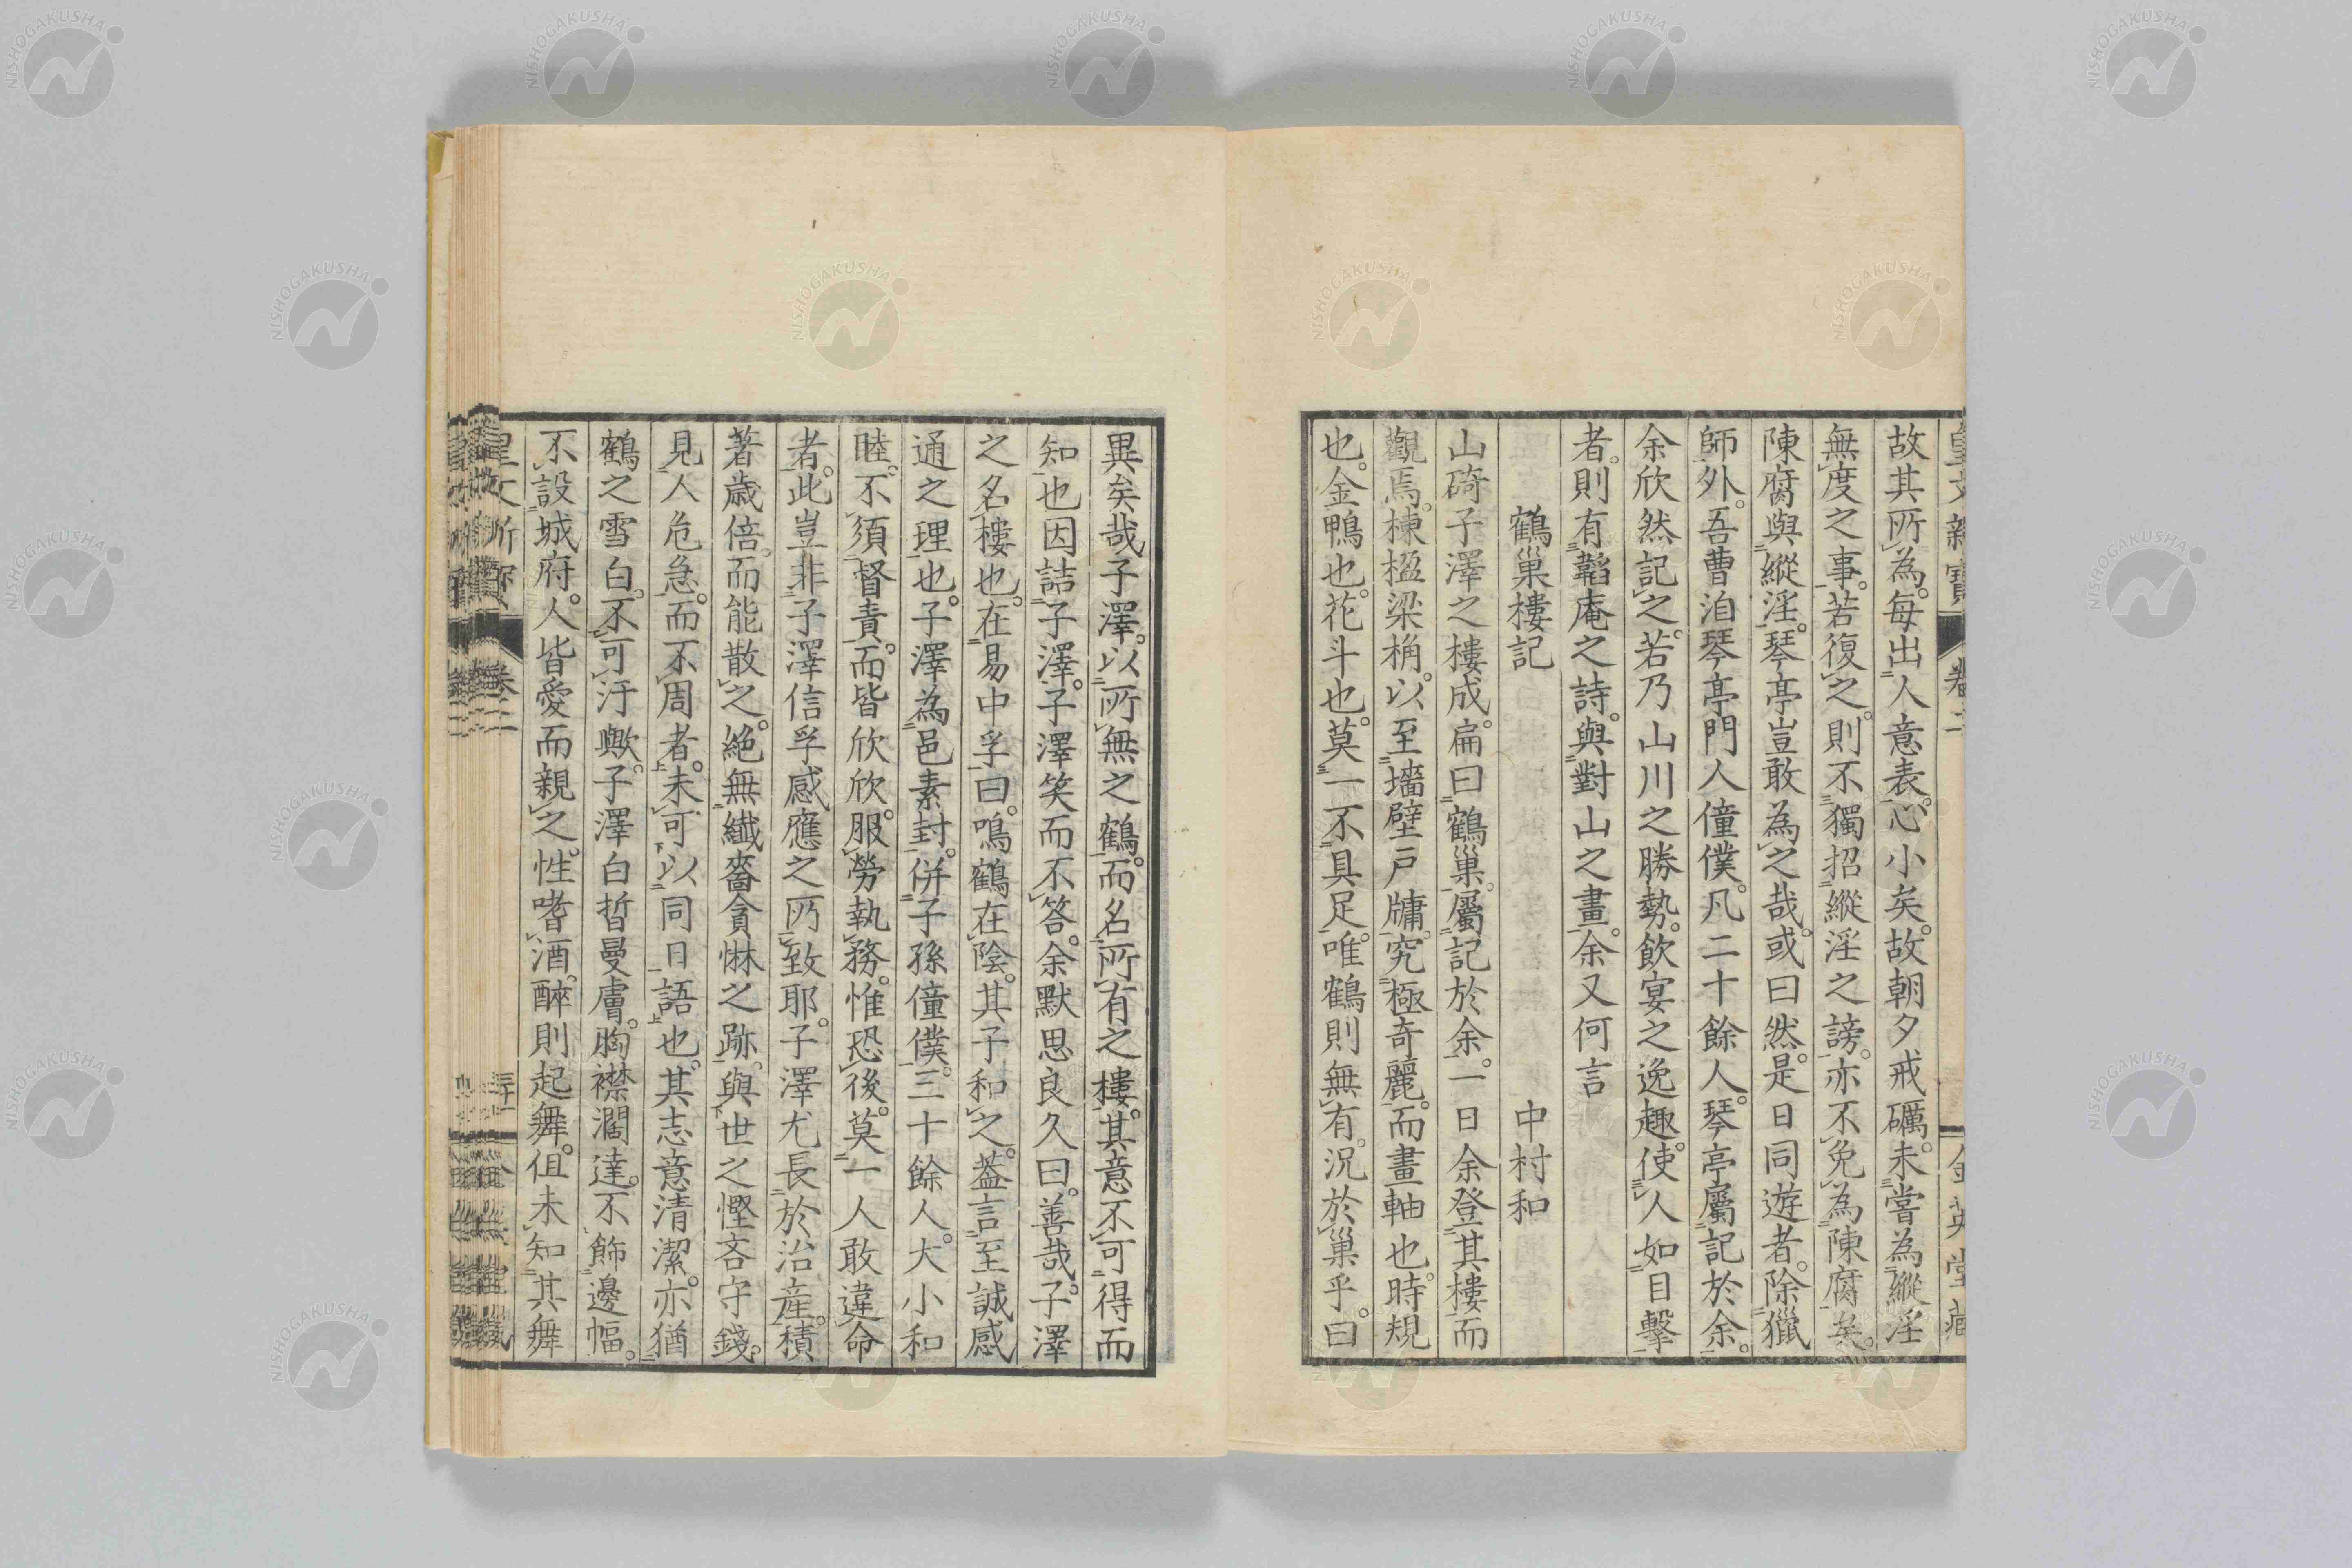 故其所為。每出人意表。心小矣。故朝夕戒礪。未嘗為縱淫
無度之事。若復之。則不獨招縱淫之謗。亦不免為陳腐矣。
陳腐與縱淫。琴亭豈敢為之哉。或曰。然。是日同遊者。除獵
師外。吾曹洎琴亭門人僮僕。凡二十餘人。琴亭屬記於余。
余欣然記之。若乃山川之勝勢。飲宴之逸趣。使人如目擊
者。則有韜庵之詩。與對山之畫。余又何言
鶴巢樓記 中村和
山碕子澤之樓成。扁曰鶴巢。屬記於余。一日余登其樓而
觀焉。棟楹梁桷。以至墻壁戶牖。究極奇麗。而畫軸也。時規
也。金鴨也。花斗也。莫一不具足。唯鶴則無有。況於巢乎。曰
異矣哉子澤。以所無之鶴。而名所有之樓。其意不可得而
知也因詰子澤。子澤笑而不答。余默思良久曰。善哉。子澤
之名樓也。在易中孚曰。鳴鶴在陰。其子和之。蓋言至誠感
通之理也。子澤為邑素封。併子孫僮僕。三十餘人。大小和
睦。不須督責。而皆欣欣。服勞執務。惟恐後。莫一人敢違命
者。此豈非子澤信孚感應之所致耶。子澤尤長於治產。積
著歲倍。而能散之。絕無纖嗇貪惏之跡。與世之慳吝守錢。
見人危急。而不周者。未可以同日語也。其志意清潔。亦猶
鶴之雪白。不可汙歟。子澤白晳曼膚。胸襟濶達。不飾邊幅。
不設城府。人皆愛而親之。性嗜酒。醉則起舞。但未知其舞
卷二